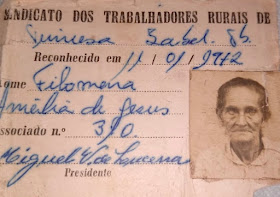 SINDICATO DOS TRABALHADORES RURAIS DE
Princesa Isabel. Pb.
Reconhecido em 11 / 9 / 1972
Nome Filomena
Amélia de Jesus
Associado n.º 310.
Miguel V. de Lucena
Presidente